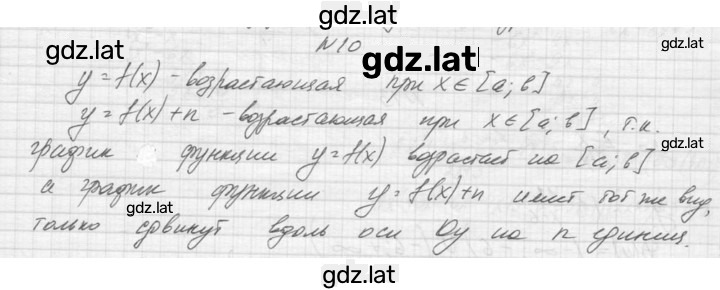 gdz.lat
N10
gdz.lat gdz.lat
y = f(x) - возрастающая при x ∈ [a; в]
y = f(x) + n - возрастающая при x ∈ [a; в], т.к.
gdz.lat
график функции y = f(x) возрастает на [a; в]
а график функции y = f(x) + n имеет тот же вид,
gdz.lat
только сдвинут вдоль оси Oy на n единиц.
gdz.lat